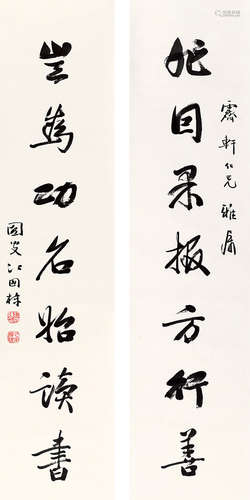 霱軒仁兄雅属
非因果报方行善
岂为功名始读书
园叟江国栋